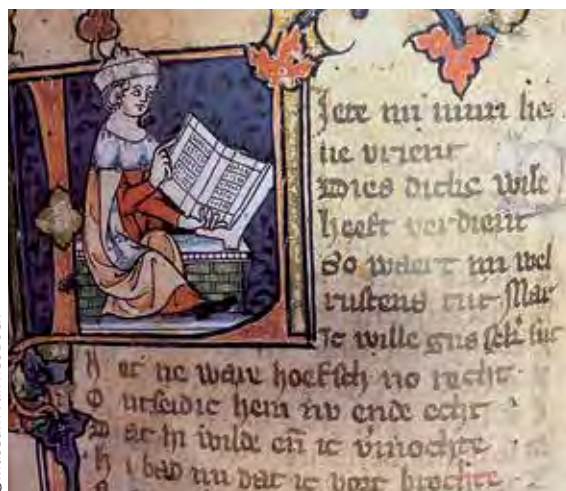 Liete mi miin lie
ue vrient
Dies dicke wile
heeft verdient
So waert mi wel
rustens tiit Mar
Ic wille
H et ne ware hoefsch no recht
O ntseidic hem nv ende echt
D at hi wilde eñ ic v̄mochte
H i bad mi dat ic vort brochte